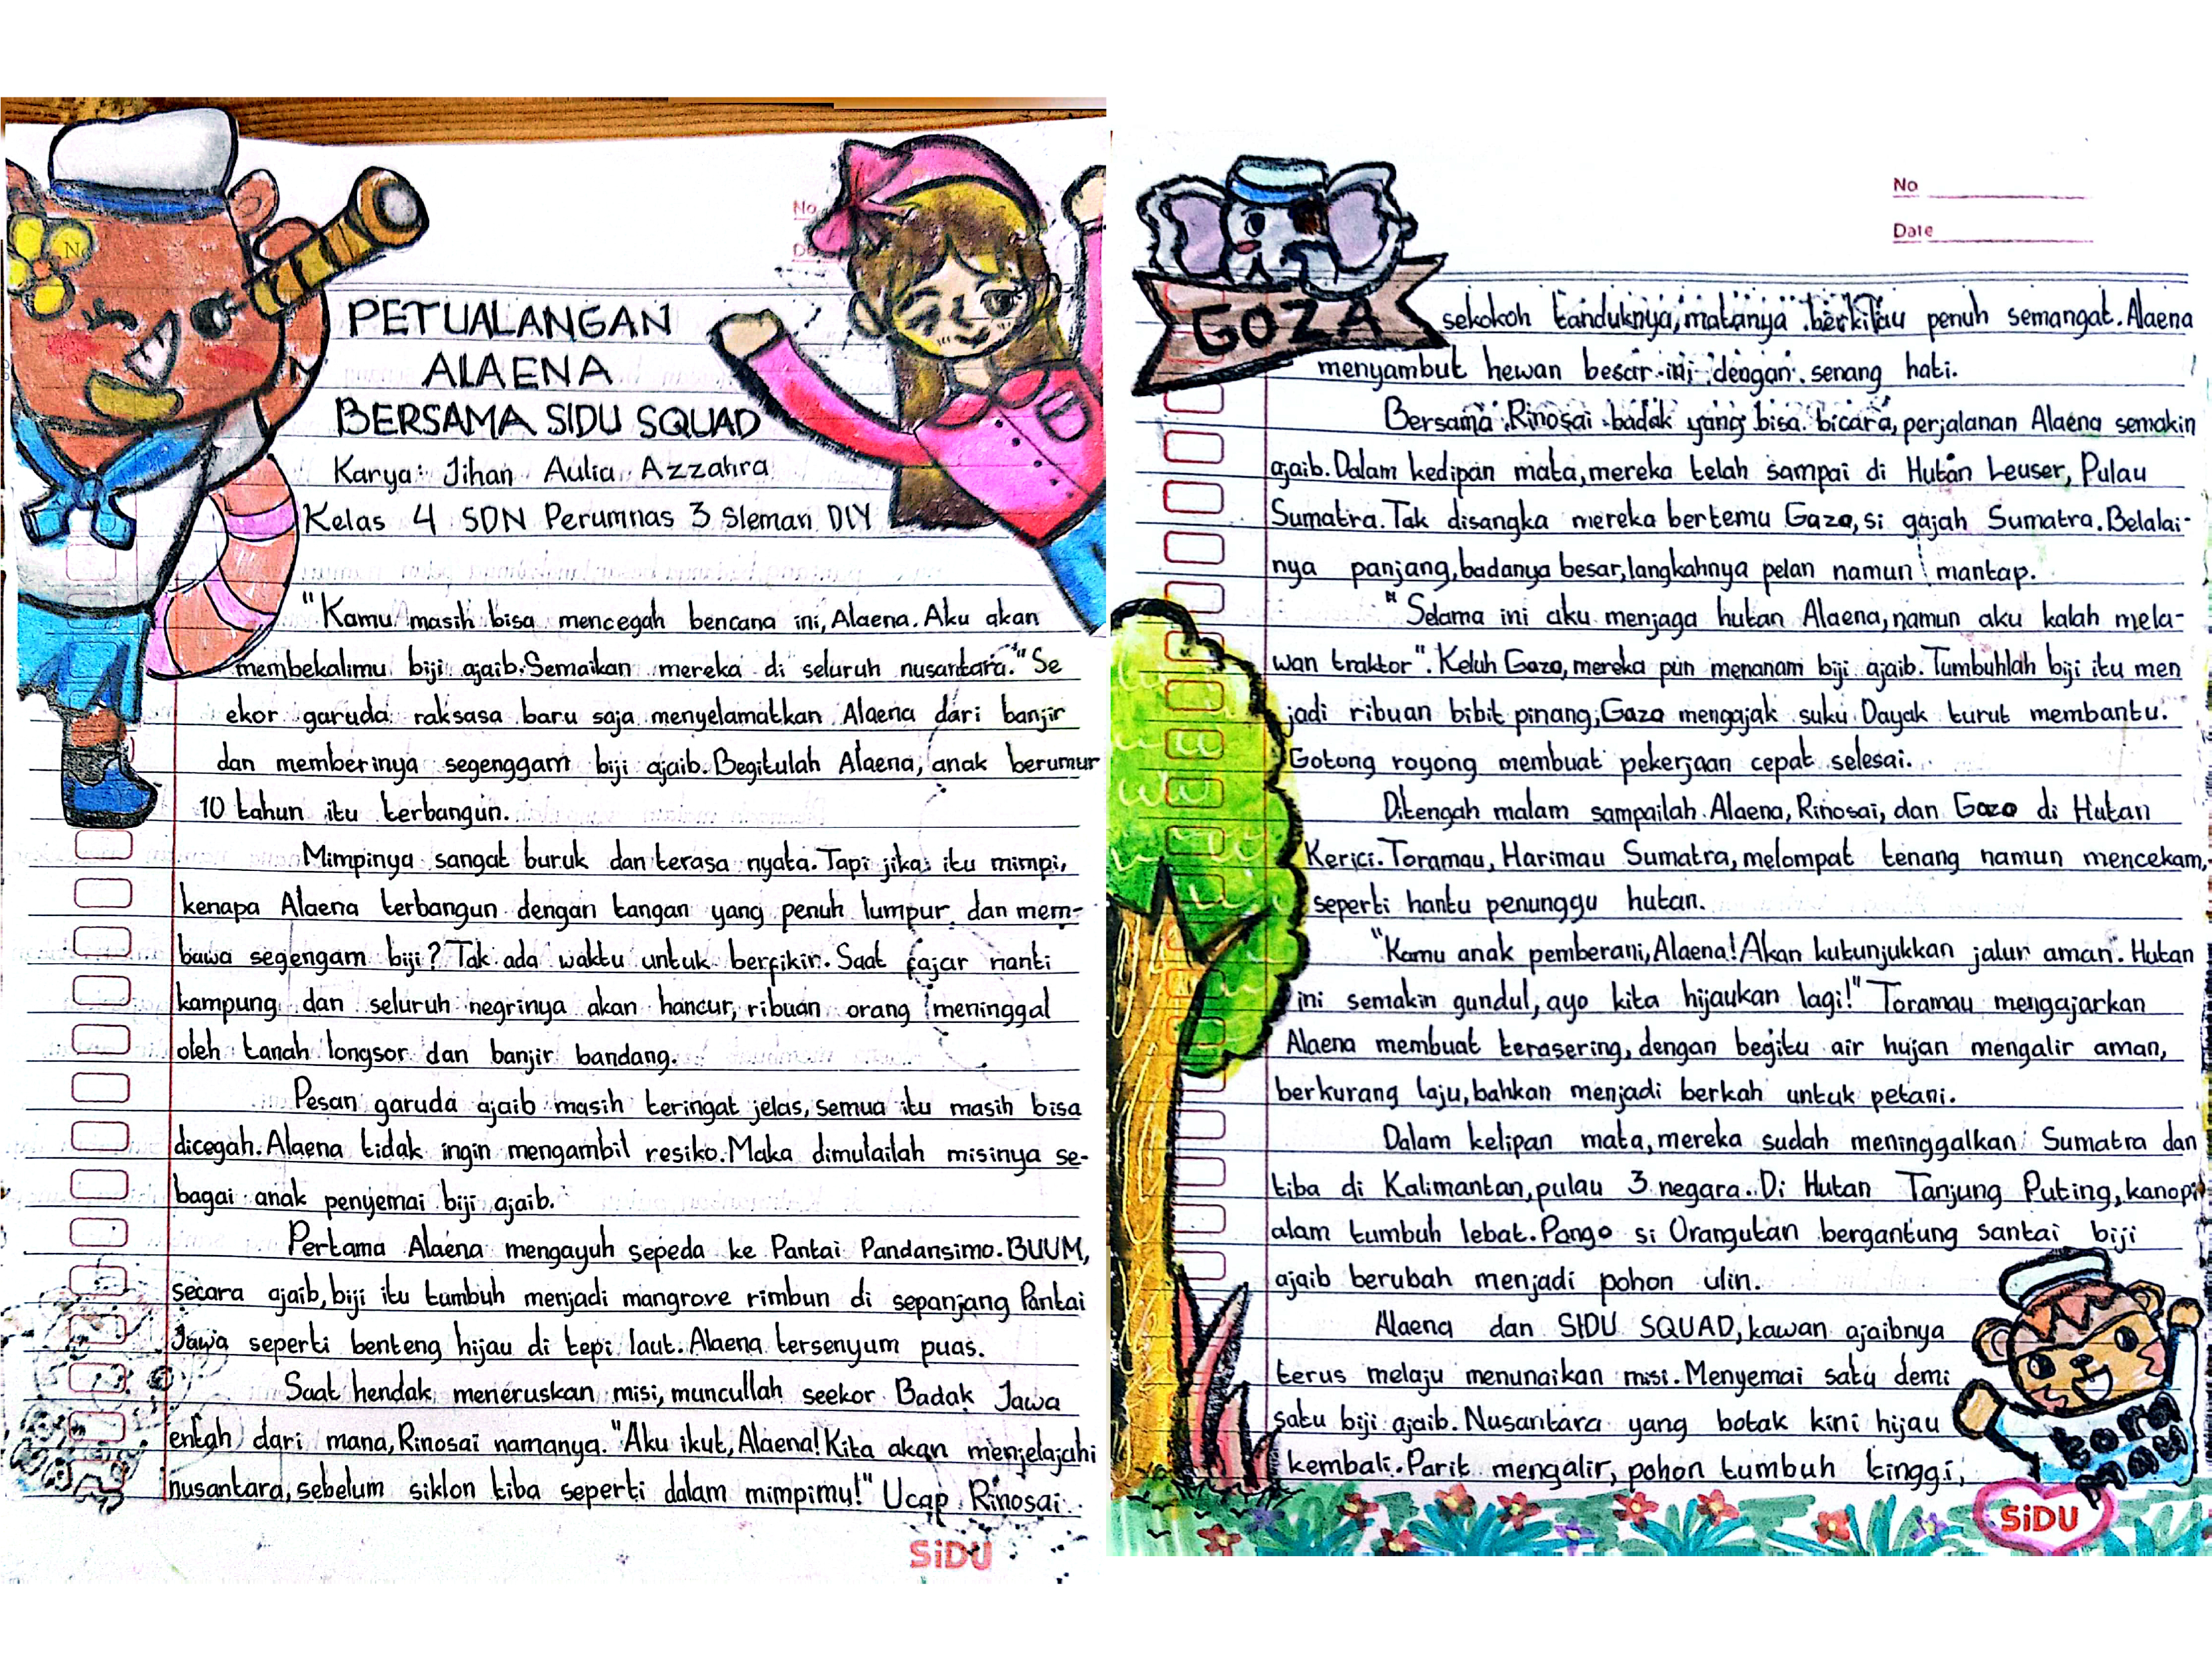 PETUALANGAN
ALAENA
BERSAMA SIDU SQUAD
Karya: Jihan Aulia Azzahra
Kelas 4 SDN Perumnas 3 Sleman DIY
"Kamu masih bisa mencegah bencana ini, Alaena. Aku akan
membekalimu biji ajaib. Semaikan mereka di seluruh nusantara." Se
ekor garuda raksasa baru saja menyelamatkan Alaena dari banjir
dan memberinya segenggam biji ajaib. Begitulah Alaena, anak berumur
10 tahun itu terbangun.
Mimpinya sangat buruk dan terasa nyata. Tapi jika itu mimpi,
kenapa Alaena terbangun dengan tangan yang penuh lumpur dan mem-
bawa segengam biji? Tak ada waktu untuk berfikir. Saat fajar nanti
kampung dan seluruh negrinya akan hancur, ribuan orang meninggal
oleh tanah longsor dan banjir bandang.
Pesan garuda ajaib masih teringat jelas, semua itu masih bisa
dicegah. Alaena tidak ingin mengambil resiko. Maka dimulailah misinya se-
bagai anak penyemai biji ajaib.
Pertama Alaena mengayuh sepeda ke Pantai Pandansimo. BUUM,
secara ajaib, biji itu tumbuh menjadi mangrove rimbun di sepanjang Pantai
Jawa seperti benteng hijau di tepi laut. Alaena tersenyum puas.
Saat hendak meneruskan misi, muncullah seekor Badak Jawa
entah dari mana, Rinosai namanya. "Aku ikut, Alaena! Kita akan menjelajahi
nusantara, sebelum siklon tiba seperti dalam mimpimu!" Ucap Rinosai.
SiDU
No
Date
GOZA
sekokoh tanduknya, matanya berkilau penuh semangat. Alaena
menyambut hewan besar ini dengan senang hati.
Bersama Rinosai badak yang bisa bicara, perjalanan Alaena semakin
ajaib. Dalam kedipan mata, mereka telah sampai di Hutan Leuser, Pulau
Sumatra. Tak disangka mereka bertemu Gaza, si gajah Sumatra. Belalai-
nya panjang, badanya besar, langkahnya pelan namun mantap.
"Selama ini aku menjaga hutan Alaena, namun aku kalah mela-
wan traktor". Keluh Gaza, mereka pun menanam biji ajaib. Tumbuhlah biji itu men
jadi ribuan bibit pinang, Gaza mengajak suku Dayak turut membantu.
Gotong royong membuat pekerjaan cepat selesai.
Ditengah malam sampailah Alaena, Rinosai, dan Gaza di Hutan
Kerici. Toramau, Harimau Sumatra, melompat tenang namun mencekam,
seperti hantu penunggu hutan.
"Kamu anak pemberani, Alaena! Akan kutunjukkan jalur aman. Hutan
ini semakin gundul, ayo kita hijaukan lagi!" Toramau mengajarkan
Alaena membuat terasering, dengan begitu air hujan mengalir aman,
berkurang laju, bahkan menjadi berkah untuk petani.
Dalam kelipan mata, mereka sudah meninggalkan Sumatra dan
tiba di Kalimantan, pulau 3 negara. Di Hutan Tanjung Puting, kanopi
alam tumbuh lebat. Pango si Orangutan bergantung santai biji
ajaib berubah menjadi pohon ulin.
Alaena dan SIDU SQUAD, kawan ajaibnya
terus melaju menunaikan misi. Menyemai satu demi
satu biji ajaib. Nusantara yang botak kini hijau
kembali. Parit mengalir, pohon tumbuh tinggi,
tora
mau
SiDU